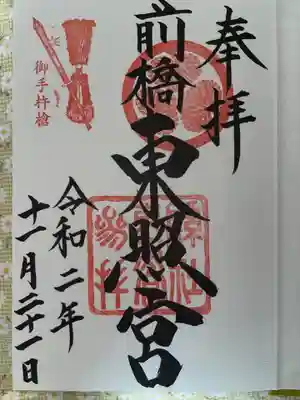 奉拝
前橋東照宮
御手杵槍
令和二年
十一月二十一日